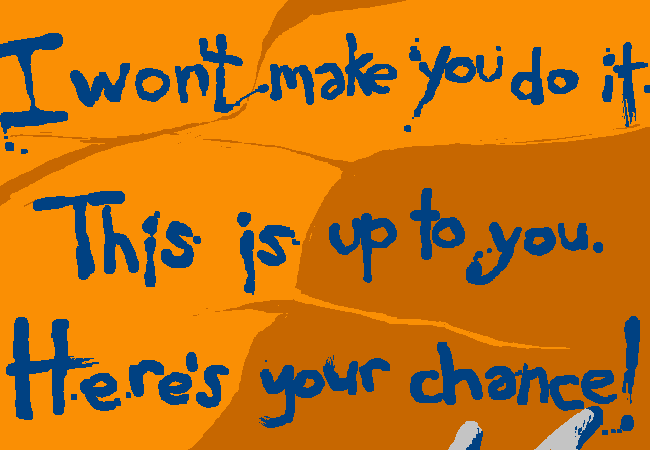 I won't make you do it.
This is up to you.
Here's your chance!